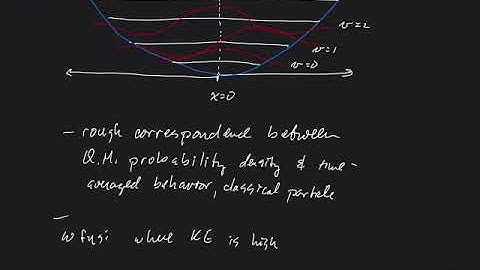 v=2
v=1
v=0
x=0
- rough correspondence between
Q.M. probability density & time-
averaged behavior, classical particle
-
where KE is high